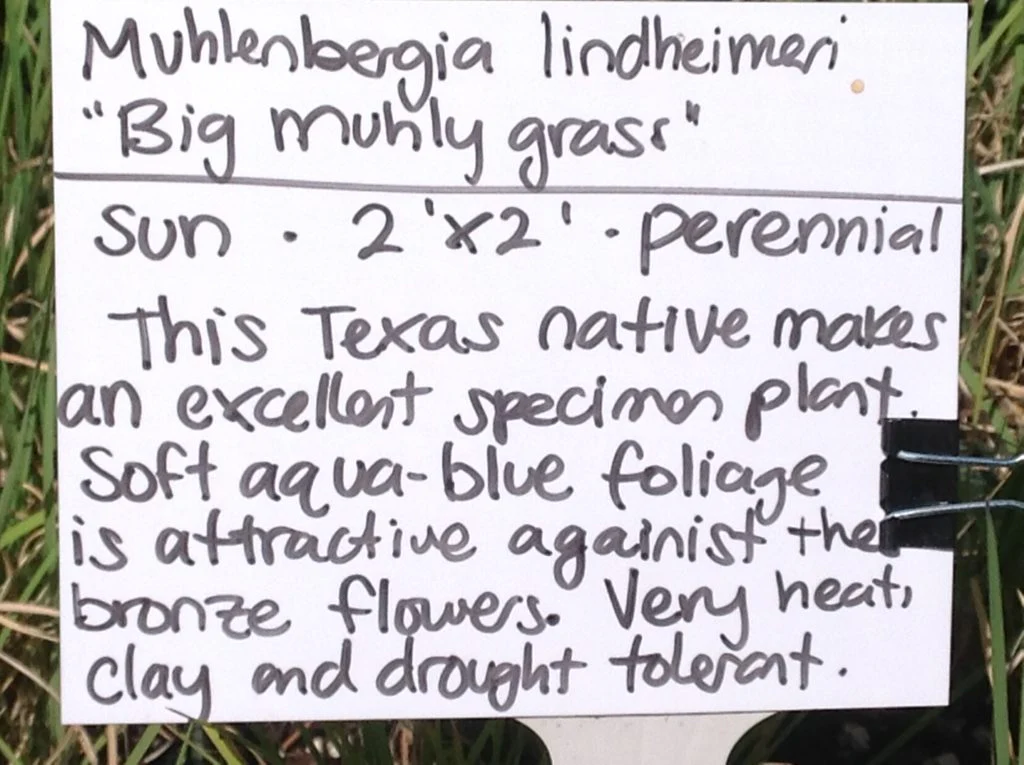 Muhlenbergia lindheimeri
"Big muhly grass"
sun · 2'x2' · perennial
This Texas native makes
an excellent specimen plant.
Soft aqua-blue foliage
is attractive againist the
bronze flowers. Very heat,
clay and drought tolerant.